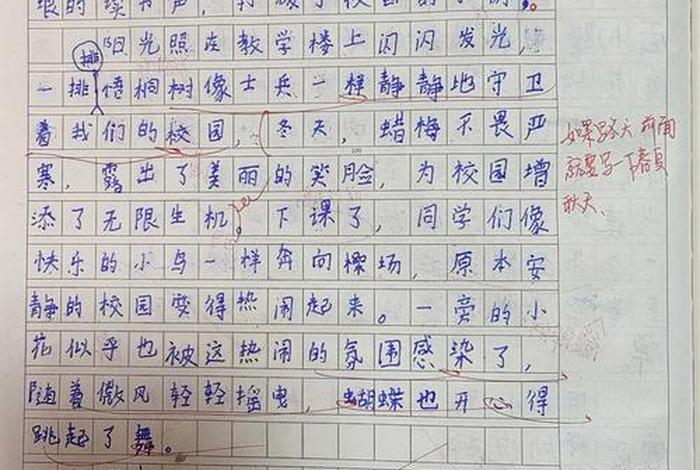 的读书声，打破了校园的
阳光照在教学楼上闪闪发光，
排
一排梧桐树像士兵一样静静地守卫
着我们的校园，冬天，蜡梅不畏严
寒，露出了美丽的笑脸，为校园增
添了无限生机。下课了，同学们像
快乐的小鸟一样奔向操场，原本安
静的校园变得热闹起来。一旁的小
花似乎也被这热闹的氛围感染了，
随着微风轻轻摇曳，蝴蝶也开心得
跳起了舞。
如果写冬天前面
就要写下春夏
秋天、